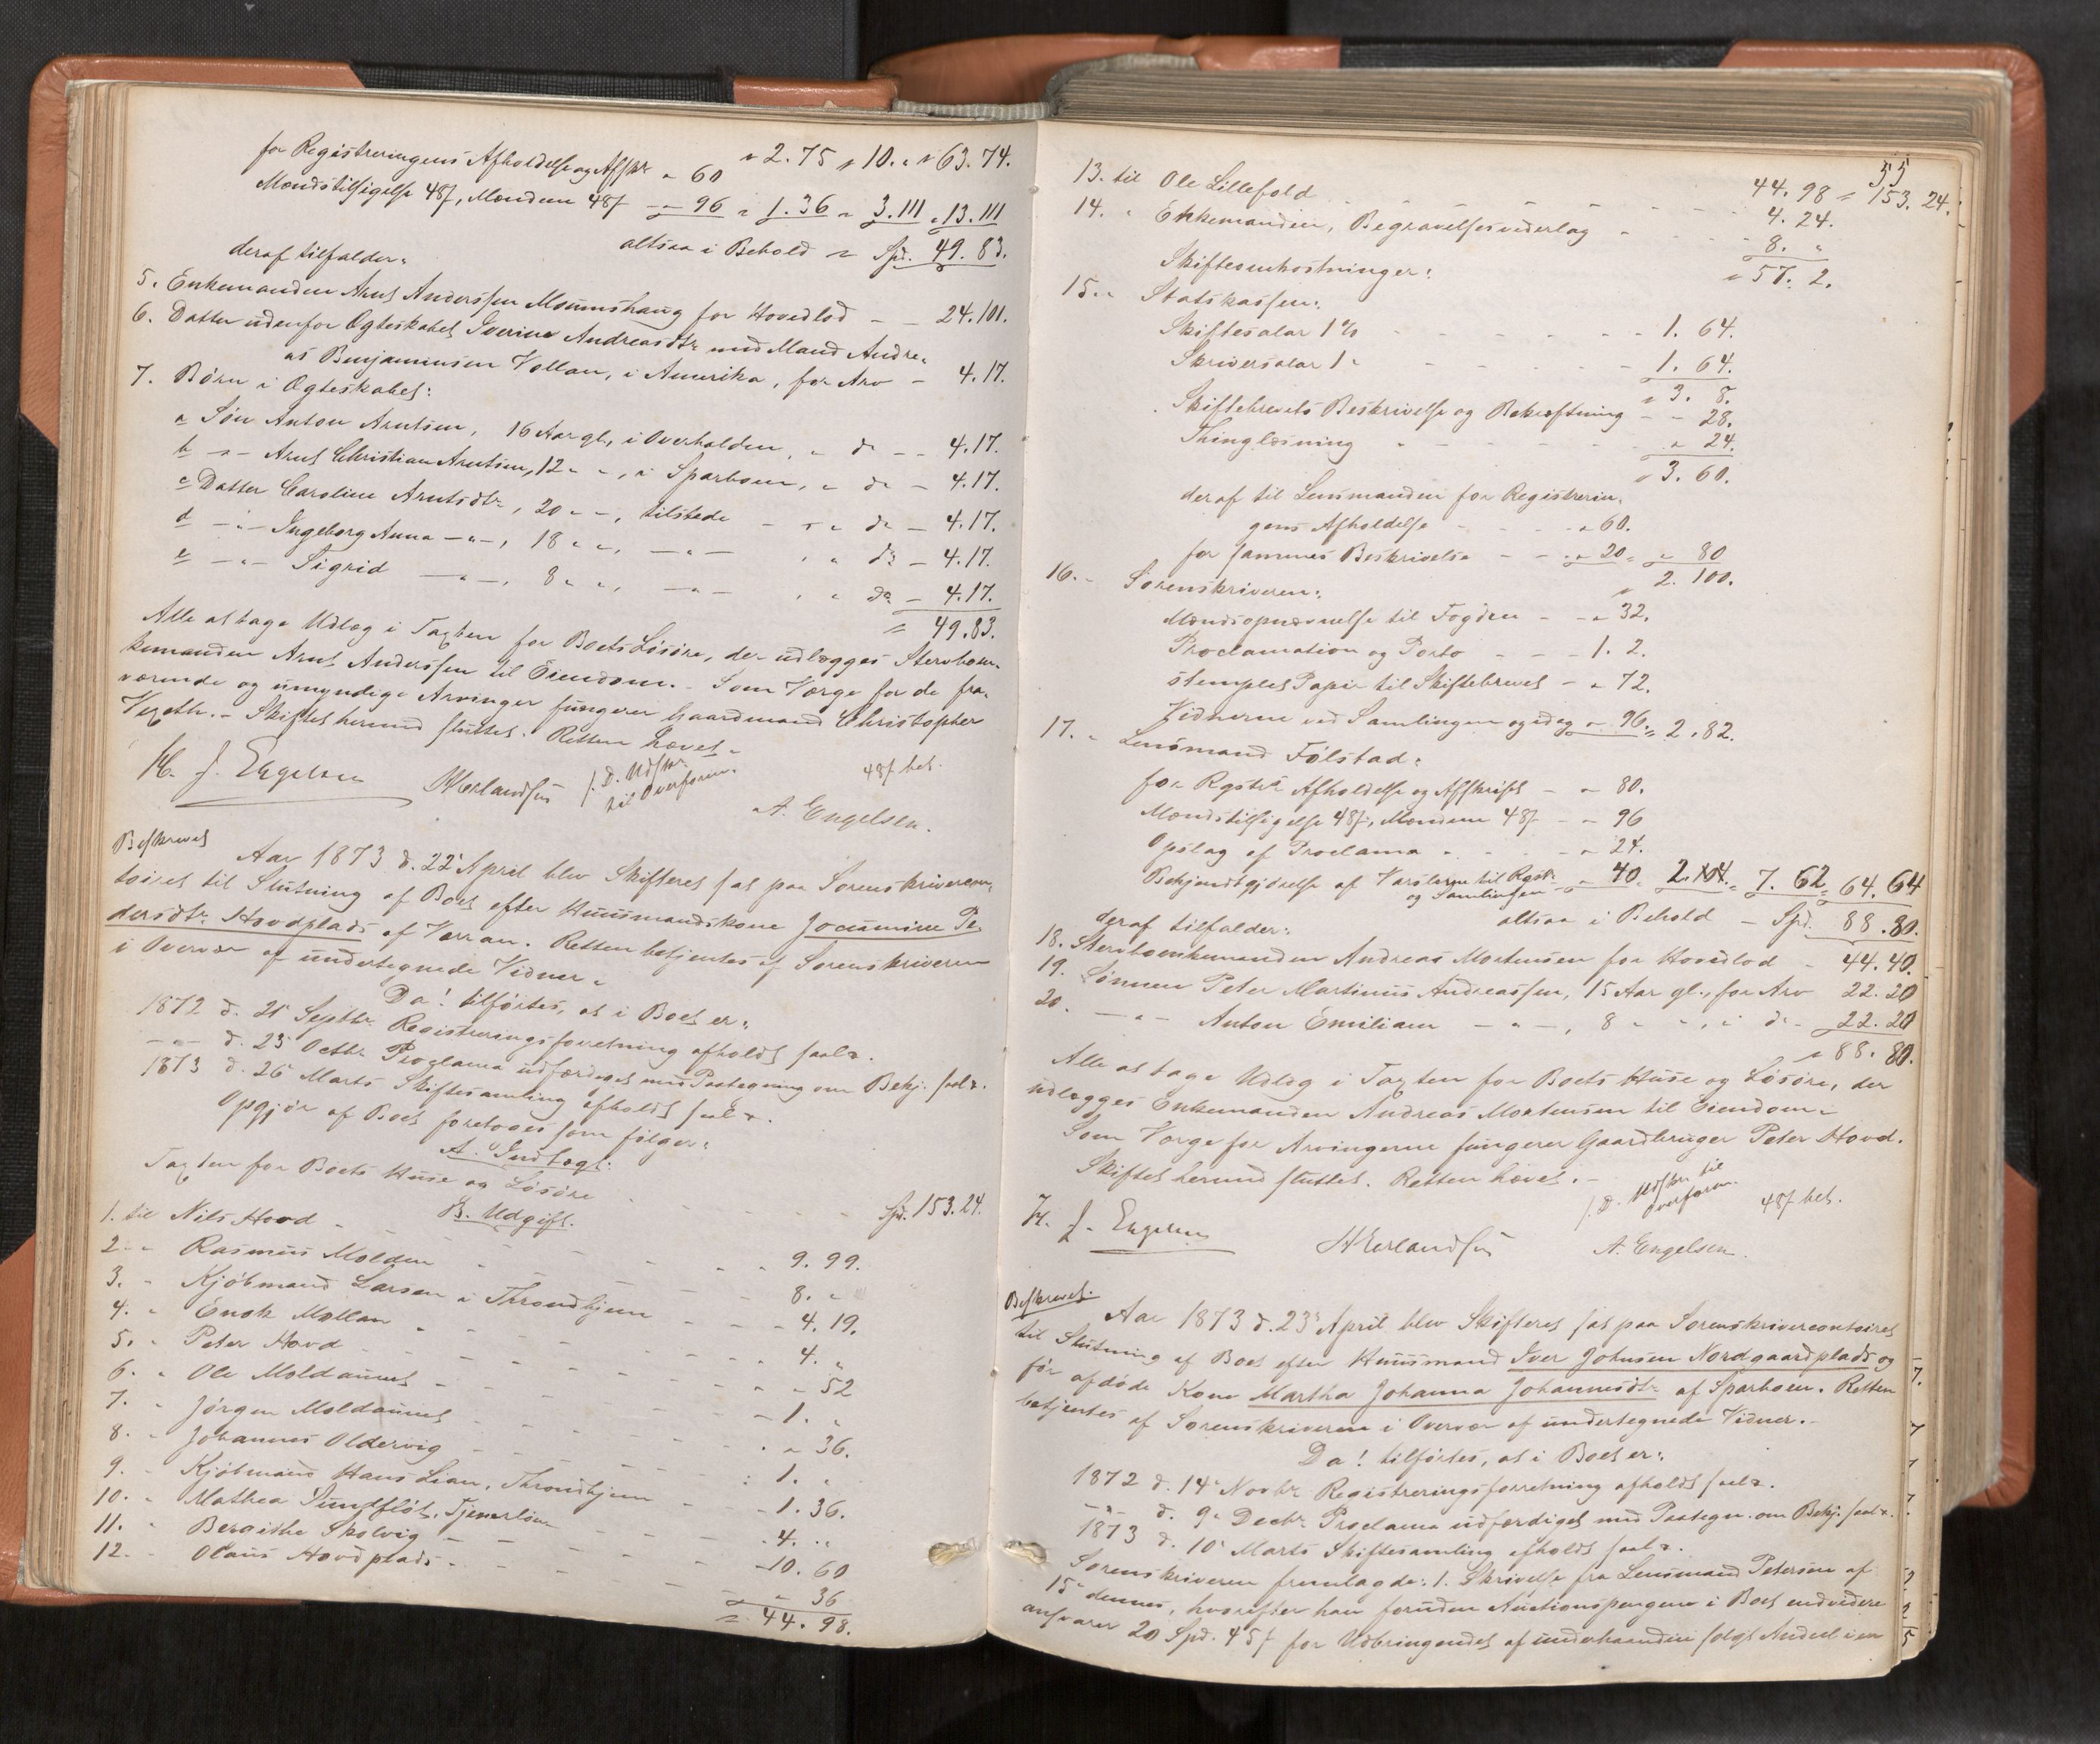 for Registreringens Afholdelse og Afskr. " 60 " 2. 75 " 10. " " 63. 74.
Mændstilsigelse 48 f, Mændene 48 f - " 96 " 1. 36 " 3. 111 " 13. 111
altsaa i Behold = Spd. 49. 83.
deraf tilfalder:
5. Enkemanden Arnt Anderssen Mounishaug for Hovedlod - - 24. 101.
6. Datter udenfor Ægteskabet Iverine Andreasdtr. med Mand Andre-
as Benjaminsen Vollan, i Amerika, for Arv - 4. 17.
7. Børn i Ægteskabet:
a Søn Anton Arntsen, 16 Aar gl., i Overhalden, " do - - 4. 17.
b - " - Arnt Christian Arntsen, 12 " " , i Sparboen, " do - 4. 17.
c Datter Caroline Arntsdtr., 20 " " , tilstede - " " do - 4. 17.
d - " - Ingeborg Anna - " - , 18 " " , - " - , " do - 4. 17.
e - " - Sigrid - " - , 8 " " , - " - , " do - 4. 17.
= 49. 83.
Alle at tage Udlæg i Taxten for Boets Løsøre, der udlægges Sterboen-
kemanden Arnt Anderssen til Eiendom. - Som Værge for de fra-
værende og umyndige Arvinger fungerer Gaardmand Christopher
Vexeth. - Skiftet hermed sluttet. Retten hævet. -
H. J. Engelsen HErlandsen f. D. Udskr. til Overform. 48 f bet.
A. Engelsen.
Beskrevet
Aar 1873 d. 22' April blev Skifteret sat paa Sorenskrivercon-
toiret til Slutning af Boet efter Huusmandskone Jocumine Pe-
dersdtr. Hovdplads af Værran. Retten betjentes af Sorenskriveren
i Overvær af undertegnede Vidner.
Da! tilførtes, at i Boet er:
1872 d. 21' Septbr. Registreringsforretning afholdt saal.
- " - d. 23' Octbr. Proclama udfærdiget med Paategning om Bekj. saal.
1873 d. 26' Marts Skiftesamling afholdt saal.
Opgjør af Boet foretoges som følger:
A. Indtægt.
Taxten for Boets Huse og Løsøre - - - - Spd. 153. 24.
B. Udgift.
1. til Nils Hovd - - - - 9. 99.
2. " Rasmus Molden - - - - 8. "
3. " Kjøbmand Larsen i Throndhjem - - - 4. 19.
4. " Enok Mollan - - - - 4. "
5. " Peter Hovd - - - - " 52
6. " Ole Moldaunet - - - - 1. "
7. " Jørgen Moldaunet - - - - " 36.
8. " Johannes Oldervig - - - - 1. "
9. " Kjøbmand Hans Lian, Throndhjem - - 1. 36.
10. " Mathea Sundfløt, Tjenerløn - - - 4. "
11. " Beraithe Skolvig - - - - 10. 60
12. " Olaus Hovdplads - - - - " 36
= 44. 98.
55
44. 98 = 153. 24.
13. til Ole Lillefold - - - - 4. 24.
14. " Enkemanden, Begravelsesvederlag - - - 8. "
" 57. 2.
Skifteomkostninger:
15. " Statskassen:
Skiftesalar 1 % - - - - 1. 64.
Skriversalar 1 " - - - - 1. 64.
" 3. 8.
Skiftebrevets Beskrivelse og Bekræftning - - 28.
Thinglæsning - - - - " 24.
" 3. 60.
deraf til Lensmanden for Registrerin-
gens Afholdelse - - - " 60.
for sammes Beskrivelse - - " 20 = " 80
" 2. 100.
16. " Sorenskriveren:
Mændsopnævnelse til Fogden - - " 32.
Proclamation og Porto - - - 1. 2.
stemplet Papir til Skiftebrevet - " 72.
Vidnerne ved Samlingen og idag - " 96. = 2. 82.
17. " Lensmand Følstad:
for Rgstr. Afholdelse og Afskrift - - " 80.
Mændstilsigelse 48 f, Mændene 48 f - " 96
Opslag af Proclama - - - - " 24.
Bekjendtgjørelse af Varslerne til Rgstr. og Samlingen - " 40. 2. 104. = 7. 62 = 64. 64
altsaa i Behold - Spd. 88. 80.
deraf tilfalder:
18. Sterboenkemanden Andreas Mortensen for Hovedlod - 44. 40.
19. Sønnen Peter Martinus Andreassen, 15 Aar gl., for Arv 22. 20
20. - " - Anton Emilian - " - , 8 " " , " do - 22. 20
" 88. 80.
Alle at tage Udlæg i Taxten for Boets Huse og Løsøre, der
udlægges Enkemanden Andreas Mortensen til Eiendom. -
Som Værge for Arvingerne fungerer Gaardbruger Peter Hovd.
Skiftet hermed sluttet. Retten hævet. -
H. J. Engelsen HErlandsen f. D. Udskr. til Overform. 48 f bet.
A. Engelsen.
Beskrevet.
Aar 1873 d. 23' April blev Skifteret sat paa Sorenskrivercontoiret
til Slutning af Boet efter Huusmand Iver Johnsen Nordgaardplads og
før afdøde Kone Martha Johanna Johannesdtr. af Sparboen. Retten
betjentes af Sorenskriveren i Overvær af undertegnede Vidner. -
Da! tilførtes, at i Boet er:
1872 d. 14' Novbr. Registreringsforretning afholdt saal.
- " - d. 9' Decbr. Proclama udfærdiget med Paategn. om Bekj. saal.
1873 d. 10' Marts Skiftesamling afholdt saal.
Sorenskriveren fremlagde: 1. Skrivelse fra Lensmand Petersen af
15' dennes, hvorefter han foruden Auctionspengene i Boet endvidere
ansvarer 20 Spd. 45 f for Udbringendet af underhaanden solgt Andeel i en